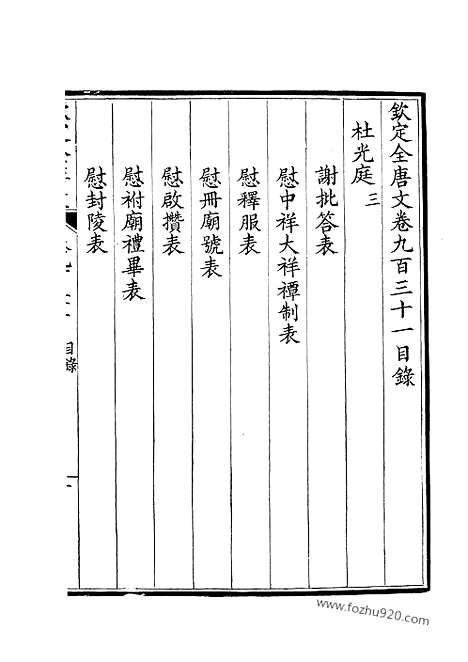 欽定全唐文卷九百三十一目錄
杜光庭 三
謝批答表
慰中祥大祥禫制表
慰釋服表
慰冊廟號表
慰啟攢表
慰祔廟禮畢表
慰封陵表
目錄
www.fozhu920.com